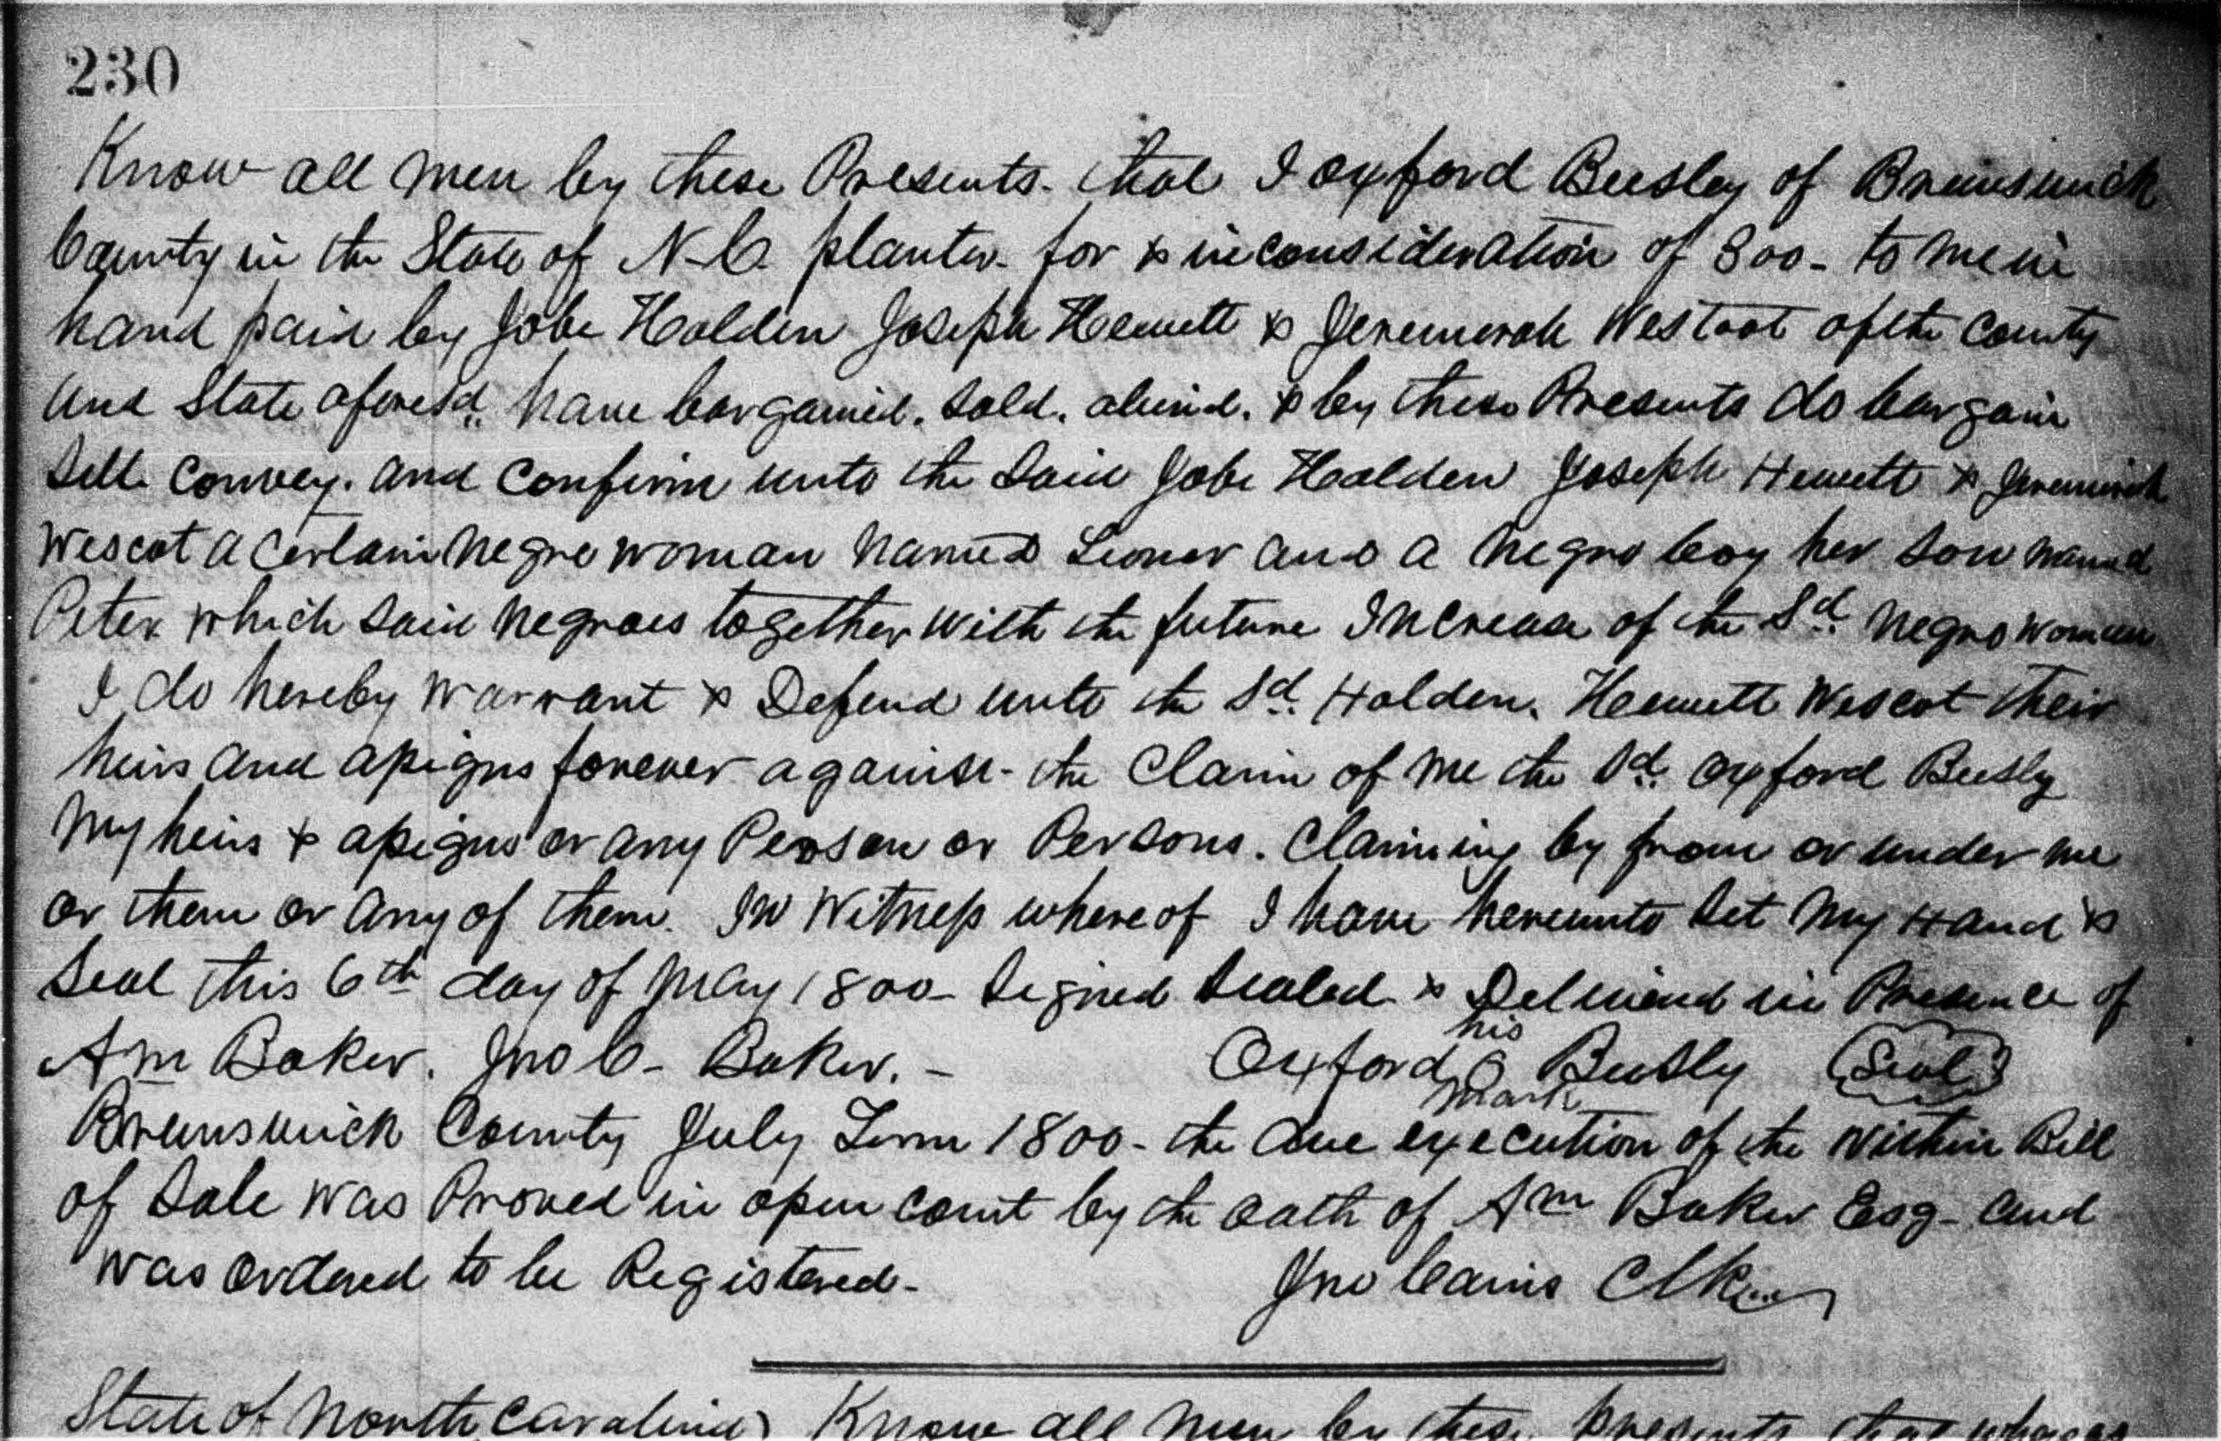 230
Know all men by these Presents. that I oxford Beesley of Brunswick
County in the State of N-C. planter. for & in consideration of 800- to me in
hand paid by Jobe Holden Joseph Hewett & Jeremiah Westcot of the County
and State aforesd. have bargained. Sold. aliend. & by these Presents do bargain
Sell. Convey. and Confirm unto the Said Jobe Holden Joseph Hewett & Jeremiah
Wescot a Certain negro woman named Leoner and a negro boy her Son named
Peter which Said negroes together with the future Increase of the Sd. negro woman
I do hereby warrant & Defend unto the Sd. Holden. Hewett Wescot their
heirs and assigns forever against- the Claim of me the Sd. oxford Beesly
My heirs & assigns or any Person or Persons. Claiming by from or under me
or them or any of them. In Witness whereof I have hereunto Set My Hand &
Seal this 6th day of May 1800- Signed Sealed & Delivered in Presence of
Am Baker. Jno C- Baker. - Oxford his O mark Beesly (Seal)
Brunswick County July Term 1800- the due execution of the within Bill
of Sale was Proved in open Court by the oath of Am Baker Esq- and
was ordered to be Registered- Jno Cains Clk
State of North Carolina) Know all men by these presents that whereas